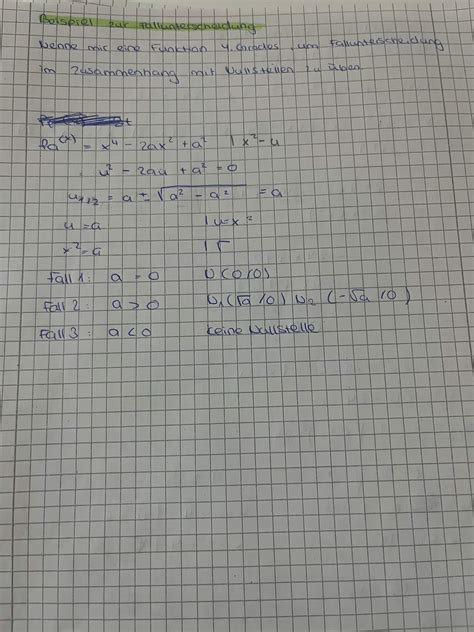 Beispiel zur Fallunterscheidung
Nenne mir eine Funktion 4. Grades, um Fallunterscheidung
im Zusammenhang mit Nullstellen zu üben.
fa(x) = x⁴ - 2ax² + a² | x² = u
u² - 2au + a² = 0
u₁,₂ = a ± √(a² - a²) = a
u = a | u = x²
x² = a | √
Fall 1: a = 0 N(0/0)
Fall 2 a > 0 N₁(√a/0) N₂(-√a/0)
Fall 3: a < 0 keine Nullstelle